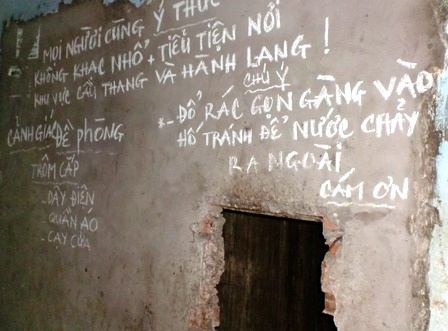 ! MỌI NGƯỜI CÙNG Ý THỨC
KHÔNG KHẠC NHỔ + TIỂU TIỆN NƠI
KHU VỰC CẦU THANG VÀ HÀNH LANG !
CHÚ Ý
*- ĐỔ RÁC GỌN GÀNG VÀO
HỐ TRÁNH ĐỂ NƯỚC CHẢY
RA NGOÀI
CÁM ƠN
CẢNH GIÁC ĐỀ PHÒNG
TRỘM CẮP
- DÂY ĐIỆN
- QUẦN ÁO
- CẠY CỬA